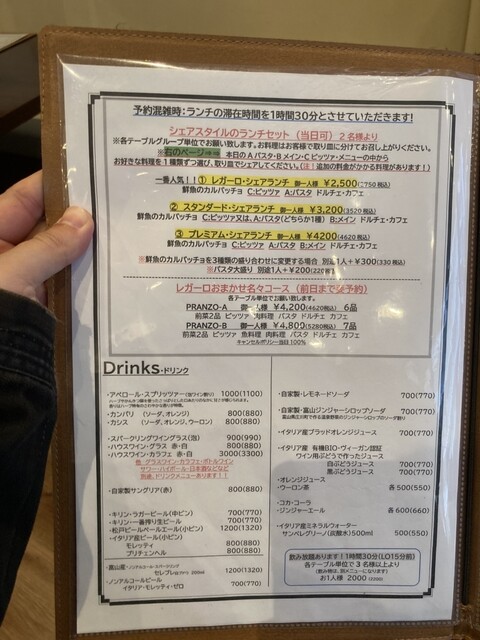 予約混雑時：ランチの滞在時間を1時間30分とさせていただきます!
シェアスタイルのランチセット（当日可）２名様より
※各テーブルグループ単位でお願い致します。お料理はお客様で取り皿に分けてお召し上がりください。
※右のページ⇒⇒ 本日のAパスタ・Bメイン・Cピッツァ・メニューの中から
お好きな料理を１種類ずつ選び、取り皿でシェアしてください。(注！追加の料金がかかる料理があります!)
一番人気!! ① レガーロ・シェアランチ 御一人様 ￥2,500(2750税込)
鮮魚のカルパッチョ C:ピッツァ A:パスタ ドルチェ・カフェ
② スタンダード・シェアランチ 御一人様 ￥3,200(3520税込)
鮮魚のカルパッチョ C:ピッツァ又は、A:パスタ(どちらか1種) B:メイン ドルチェ・カフェ
③ プレミアム・シェアランチ 御一人様 ￥4200(4620税込)
鮮魚のカルパッチョ C:ピッツァ A:パスタ B:メイン ドルチェ・カフェ
※鮮魚のカルパッチョを3種類の盛り合わせに変更する場合 別途1人＋¥300(330税込)
※パスタ大盛り 別途1人＋¥200(220税込)
レガーロおまかせ名々コース（前日まで要予約）
各テーブル単位でお願い致します。
PRANZO-A 御一人様 ￥4,200(4620税込) 6品
前菜2品 ピッツァ 肉料理 パスタ ドルチェ カフェ
PRANZO-B 御一人様 ￥4,800(5280税込) 7品
前菜2品 ピッツァ 魚料理 肉料理 パスタ ドルチェ カフェ
キャンセルポリシー当日100%
Drinks・ドリンク
・アペロール・スプリッツァー(泡ワイン割り) 1000(1100)
・カンパリ （ソーダ、オレンジ） 800(880)
・カシス （ソーダ、オレンジ、ウーロン） 800(880)
・スパークリングワイングラス(泡) 900(990)
・ハウスワイン・グラス 赤・白 800(880)
・ハウスワイン・カラフェ 赤・白 3000(3300)
他 グラスワイン・カラフェ・ボトルワイン
サワー・ハイボール・日本酒などなど
別途、ドリンクメニューあります!!
・自家製サングリア(赤) 800(880)
・キリン・ラガービール(中ビン) 700(770)
・キリン・一番搾り生ビール 700(770)
・松戸ビールペールエール(小ビン) 1200(1320)
・イタリア産ビール(小ビン)
モレッティ 800(880)
ブリチェンヘル 800(880)
・富山産・ノンアルコール・スパークリング
セレブレ 200ml 1200(1320)
・ノンアルコールビール
イタリア・モレッティ・ゼロ 700(770)
・自家製・レモネードソーダ 700(770)
・自家製・富山ジンジャーシロップソーダ 700(770)
・イタリア産ブラッドオレンジジュース 700(770)
・イタリア産 有機BIO・ヴィーガン認証
ワイン用ぶどうで作ったジュース
白ぶどうジュース 700(770)
黒ぶどうジュース 700(770)
・オレンジジュース
・ウーロン茶 各500(550)
・コカ・コーラ
・ジンジャーエール 各600(660)
・イタリア産ミネラルウォーター
サンペレグリーノ(炭酸水)500ml 500(550)
飲み放題あります！1時間30分(LO15分前)
各テーブル単位で３名様以上より
(飲み物は、別メニューになります)
お1人様 2000 (2200)